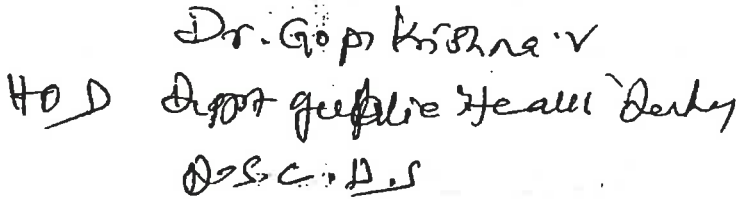 Dr. Gopi Krishna.V
HOD Deppt of public Health Dentry
D.S.C.D.S